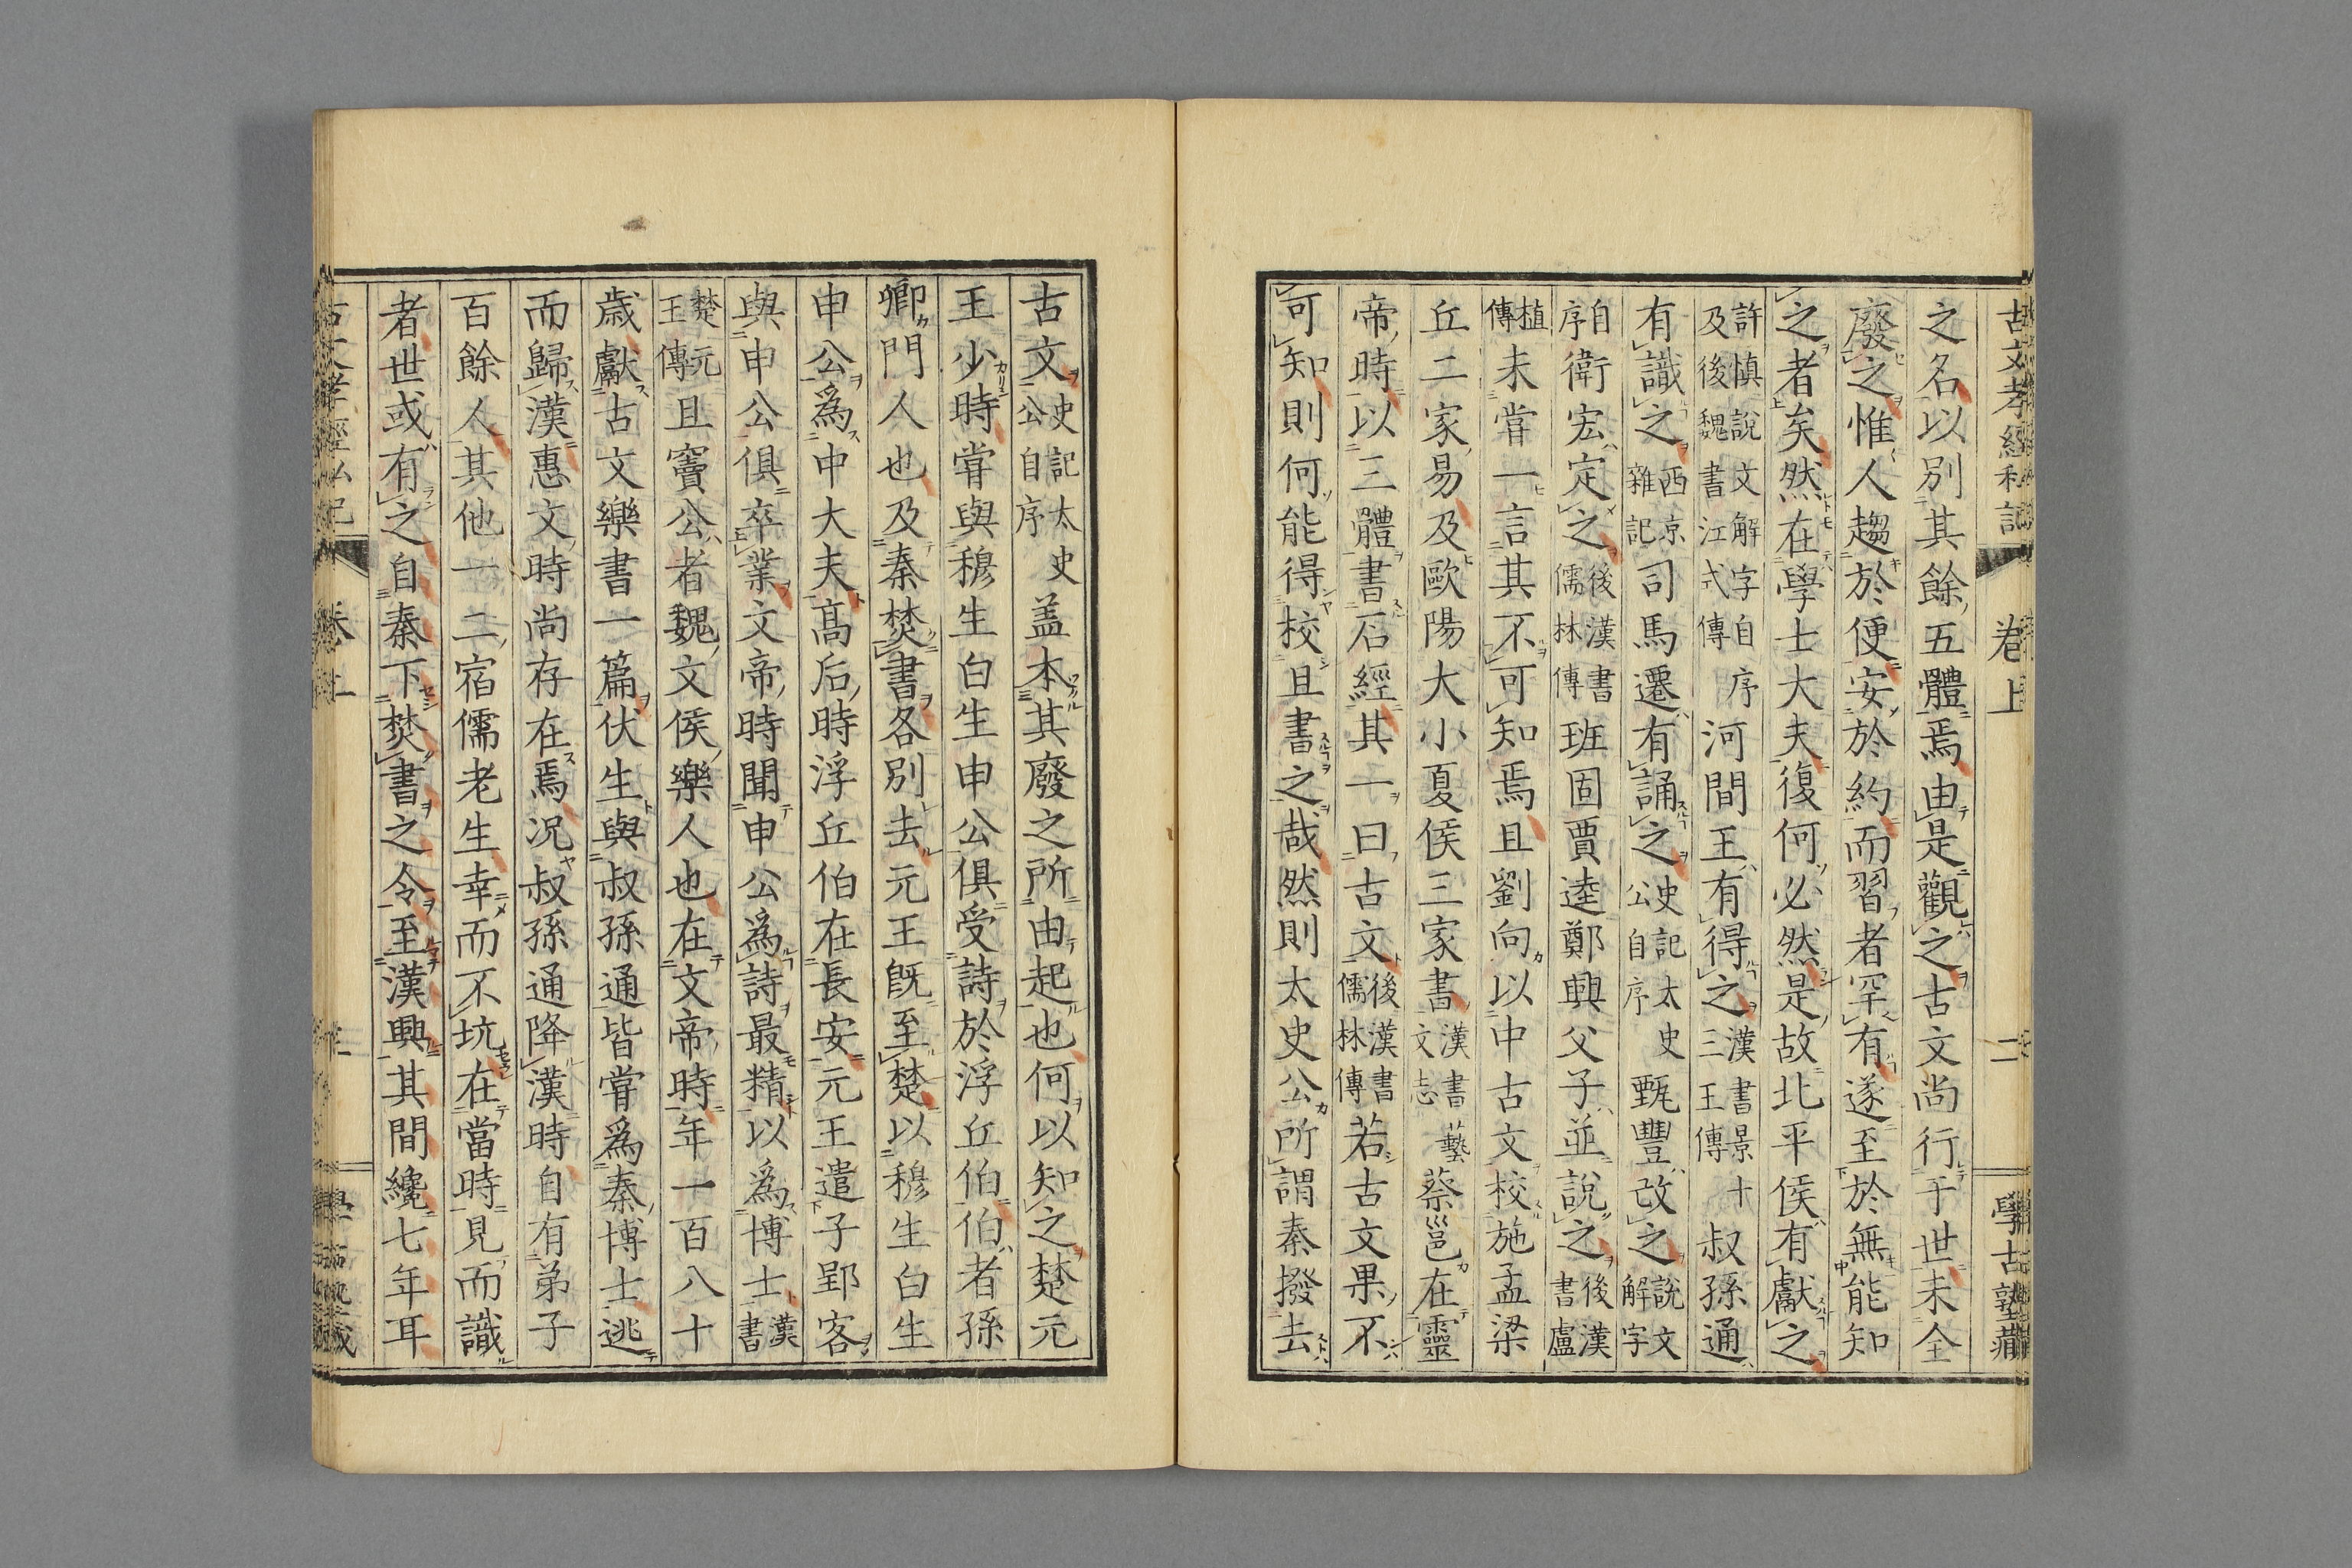 古文孝經私記　卷上　二　學古塾藏
之名以別其餘五體焉由是觀之古文尚行于世未全
廢之惟人趨於便安於約而習者罕有遂至於無能知
之者矣然在學士大夫復何必然是故北平侯有獻之
許慎說文解字自序及後魏書江式傳河間王有得之漢書景十三王傳叔孫通
有識之西京雜記司馬遷有誦之史記太史公自序甄豐改之說文解字
自序衛宏定之後漢書儒林傳班固賈逵鄭興父子並說之後漢書盧
植傳未嘗一言其不可知焉且劉向以中古文校施孟梁
丘二家易及歐陽大小夏侯三家書漢書藝文志蔡邕在靈
帝時以三體書石經其一曰古文後漢書儒林傳若古文果不
可知則何能得校且書之哉然則太史公所謂秦撥去
古文史記太史公自序盖本其廢之所由起也何以知之楚元
王少時嘗與穆生白生申公俱受詩於浮丘伯伯者孫
卿門人也及秦焚書各別去元王既至楚以穆生白生
申公爲中大夫高后時浮丘伯在長安元王遣子郢客
與申公俱卒業文帝時聞申公爲詩最精以爲博士漢書
楚元王傳且竇公者魏文侯樂人也在文帝時年一百八十
歲獻古文樂書一篇伏生與叔孫通皆嘗爲秦博士逃
而歸漢惠文時尚存在焉況叔孫通降漢時自有弟子
百餘人其他一二宿儒老生幸而不坑在當時見而識
者世或有之自秦下焚書之令至漢興其間纔七年耳